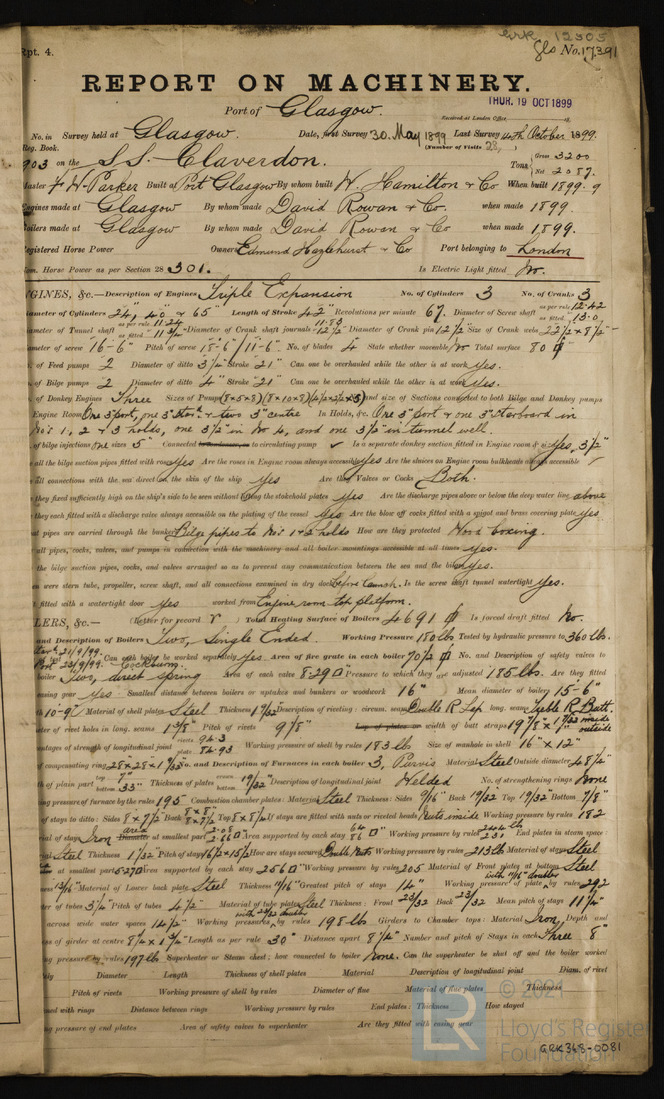 Grk 12305
Rpt. 4. Gls No. 17391
REPORT ON MACHINERY.
Port of Glasgow.
THUR. 19 OCT 1899
Received at London Office
No. in Survey held at Glasgow. Date, first Survey 30. May 1899 Last Survey 14th October 1899.
Reg. Book. (Number of Visits 28,)
903 on the S.S. Claverdon. Tons Gross 3200 Net 2087.
Master F. W. Parker Built at Port Glasgow By whom built W. Hamilton & Co When built 1899.9
Engines made at Glasgow By whom made David Rowan & Co. when made 1899.
Boilers made at Glasgow By whom made David Rowan & Co when made 1899.
Registered Horse Power Owners Edmund Hazlehurst & Co Port belonging to London
Nom. Horse Power as per Section 28 301. Is Electric Light fitted No.
ENGINES, &c.—Description of Engines Triple Expansion No. of Cylinders 3 No. of Cranks 3
Diameter of Cylinders 24", 40" & 65" Length of Stroke 42" Revolutions per minute 67. Diameter of Screw shaft as per rule 12.42 as fitted 13.0
Diameter of Tunnel shaft as per rule 11.24 as fitted 11 3/4" Diameter of Crank shaft journals 11.83 12 1/2" Diameter of Crank pin 12 1/2" Size of Crank webs 22 1/2 x 8 1/2"
Diameter of screw 16-6" Pitch of screw 18-6"/11-6" No. of blades 4 State whether moveable No Total surface 80
of Feed pumps 2 Diameter of ditto 3 1/4" Stroke 21" Can one be overhauled while the other is at work yes.
of Bilge pumps 2 Diameter of ditto 4" Stroke 21" Can one be overhauled while the other is at work yes.
of Donkey Engines Three Sizes of Pumps and size of Suctions connected to both Bilge and Donkey pumps
Engine Room One 3" port, one 3" starb. & two 3" centre In Holds, &c. One 3" port & one 3" starboard in
No's 1, 2 & 3 holds, one 3 1/2" in No 4, and one 3 1/2" in tunnel well.
of bilge injections one sizes 5" Connected to condenser, or to circulating pump ✓ Is a separate donkey suction fitted in Engine room & size yes, 3 1/2"
all the bilge suction pipes fitted with roses yes Are the roses in Engine room always accessible yes Are the sluices on Engine room bulkheads always accessible
all connections with the sea direct on the skin of the ship yes Are they Valves or Cocks Both.
they fixed sufficiently high on the ship's side to be seen without lifting the stokehold plates yes Are the discharge pipes above or below the deep water line above
they each fitted with a discharge valve always accessible on the plating of the vessel yes Are the blow off cocks fitted with a spigot and brass covering plate yes
at pipes are carried through the bunkers Bilge pipes to No's 1 & 2 holds How are they protected Wood boxing.
all pipes, cocks, valves, and pumps in connection with the machinery and all boiler mountings accessible at all times yes.
the bilge suction pipes, cocks, and valves arranged so as to prevent any communication between the sea and the bilges yes.
were stern tube, propeller, screw shaft, and all connections examined in dry dock before launch. Is the screw shaft tunnel watertight yes.
fitted with a watertight door yes worked from Engine room top platform.
BOILERS, &c.— (Letter for record r) Total Heating Surface of Boilers 4691 Is forced draft fitted No.
and Description of Boilers Two, Single Ended. Working Pressure 180 lbs Tested by hydraulic pressure to 360 lbs.
Can each boiler be worked separately yes Area of fire grate in each boiler 70 1/2 No. and Description of safety valves to
boiler Two, direct spring Area of each valve 8.29 Pressure to which they are adjusted 185 lbs. Are they fitted
easing gear yes. Smallest distance between boilers or uptakes and bunkers or woodwork 16" Mean diameter of boilers 15-6"
10-9" Material of shell plates Steel Thickness 1 7/32" Description of riveting: circum. seams Double R Lap long. seams Treble R Butt.
Diameter of rivet holes in long. seams 1 3/8" Pitch of rivets 9 7/8" Lap of plates or width of butt straps 19 7/8 x 1 7/32 inside outside
Percentages of strength of longitudinal joint rivets 94.3 plate 84.93 Working pressure of shell by rules 183 lb Size of manhole in shell 16" x 12"
of compensating ring No. and Description of Furnaces in each boiler 3, Purves Material Steel Outside diameter 48 1/2"
of plain part top 8" bottom 33" Thickness of plates crown 19/32" bottom Description of longitudinal joint Welded No. of strengthening rings None
Working pressure of furnace by the rules 195 Combustion chamber plates: Material Steel Thickness: Sides 9/16" Back 19/32 Top 19/32" Bottom 7/8"
of stays to ditto: Sides 8 x 7 1/2" Back 8 x 8 8 x 7 1/2 Top 8 x 8 1/2" If stays are fitted with nuts or riveted heads Nuts inside Working pressure by rules 182
of stays Iron area Diameter at smallest part 2.08 2.66 Area supported by each stay 64 86 Working pressure by rules 244 lb 231 End plates in steam space:
Steel Thickness 1 1/32" Pitch of stays 16 1/2 x 15 1/2 How are stays secured Double Nuts Working pressure by rules 213 lb Material of stays Steel
at smallest part 5.27 Area supported by each stay 256 Working pressure by rules 205 Material of Front plates at bottom Steel
13/16" Material of Lower back plate Steel Thickness 11/16" Greatest pitch of stays 14" Working pressure of plate by rules 292
of tubes 3 1/4" Pitch of tubes 4 1/2" Material of tube plates Steel Thickness: Front 23/32 Back 23/32 Mean pitch of stays 11 1/4"
across wide water spaces 14 1/2" Working pressures by rules 198 lb Girders to Chamber tops: Material Iron, Depth and
of girder at centre 8 1/4 x 1 3/4" Length as per rule 30" Distance apart 8 1/4" Number and pitch of Stays in each Three 8"
Working pressure by rules 197 lb Superheater or Steam chest; how connected to boiler None. Can the superheater be shut off and the boiler worked
Diameter Length Thickness of shell plates Material Description of longitudinal joint Diam. of rivet
Pitch of rivets Working pressure of shell by rules Diameter of flue Material of flue plates Thickness
with rings Distance between rings Working pressure by rules End plates: Thickness How stayed
Working pressure of end plates Area of safety valves to superheater Are they fitted with easing gear
© 2021
LR
Lloyd's Register
Foundation
GRK368-0081